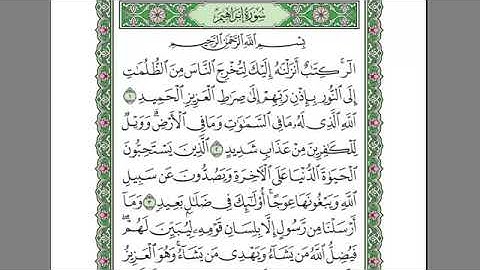 سُورَةُ إِبْرَاهِيمَ
بِسْمِ اللَّهِ الرَّحْمَٰنِ الرَّحِيمِ
الٓر ۚ كِتَٰبٌ أَنزَلْنَٰهُ إِلَيْكَ لِتُخْرِجَ النَّاسَ مِنَ الظُّلُمَٰتِ
إِلَى النُّورِ بِإِذْنِ رَبِّهِمْ إِلَىٰ صِرَٰطِ الْعَزِيزِ الْحَمِيدِ ١
اللَّهِ الَّذِي لَهُ مَا فِي السَّمَٰوَٰتِ وَمَا فِي الْأَرْضِ ۗ وَوَيْلٌ
لِّلْكَٰفِرِينَ مِنْ عَذَابٍ شَدِيدٍ ٢ الَّذِينَ يَسْتَحِبُّونَ
الْحَيَوٰةَ الدُّنْيَا عَلَى الْآخِرَةِ وَيَصُدُّونَ عَن سَبِيلِ
اللَّهِ وَيَبْغُونَهَا عِوَجًا ۚ أُولَٰئِكَ فِي ضَلَٰلٍ بَعِيدٍ ٣ وَمَا
أَرْسَلْنَا مِن رَّسُولٍ إِلَّا بِلِسَانِ قَوْمِهِ لِيُبَيِّنَ لَهُمْ ۖ
فَيُضِلُّ اللَّهُ مَن يَشَاءُ وَيَهْدِي مَن يَشَاءُ ۚ وَهُوَ الْعَزِيزُ